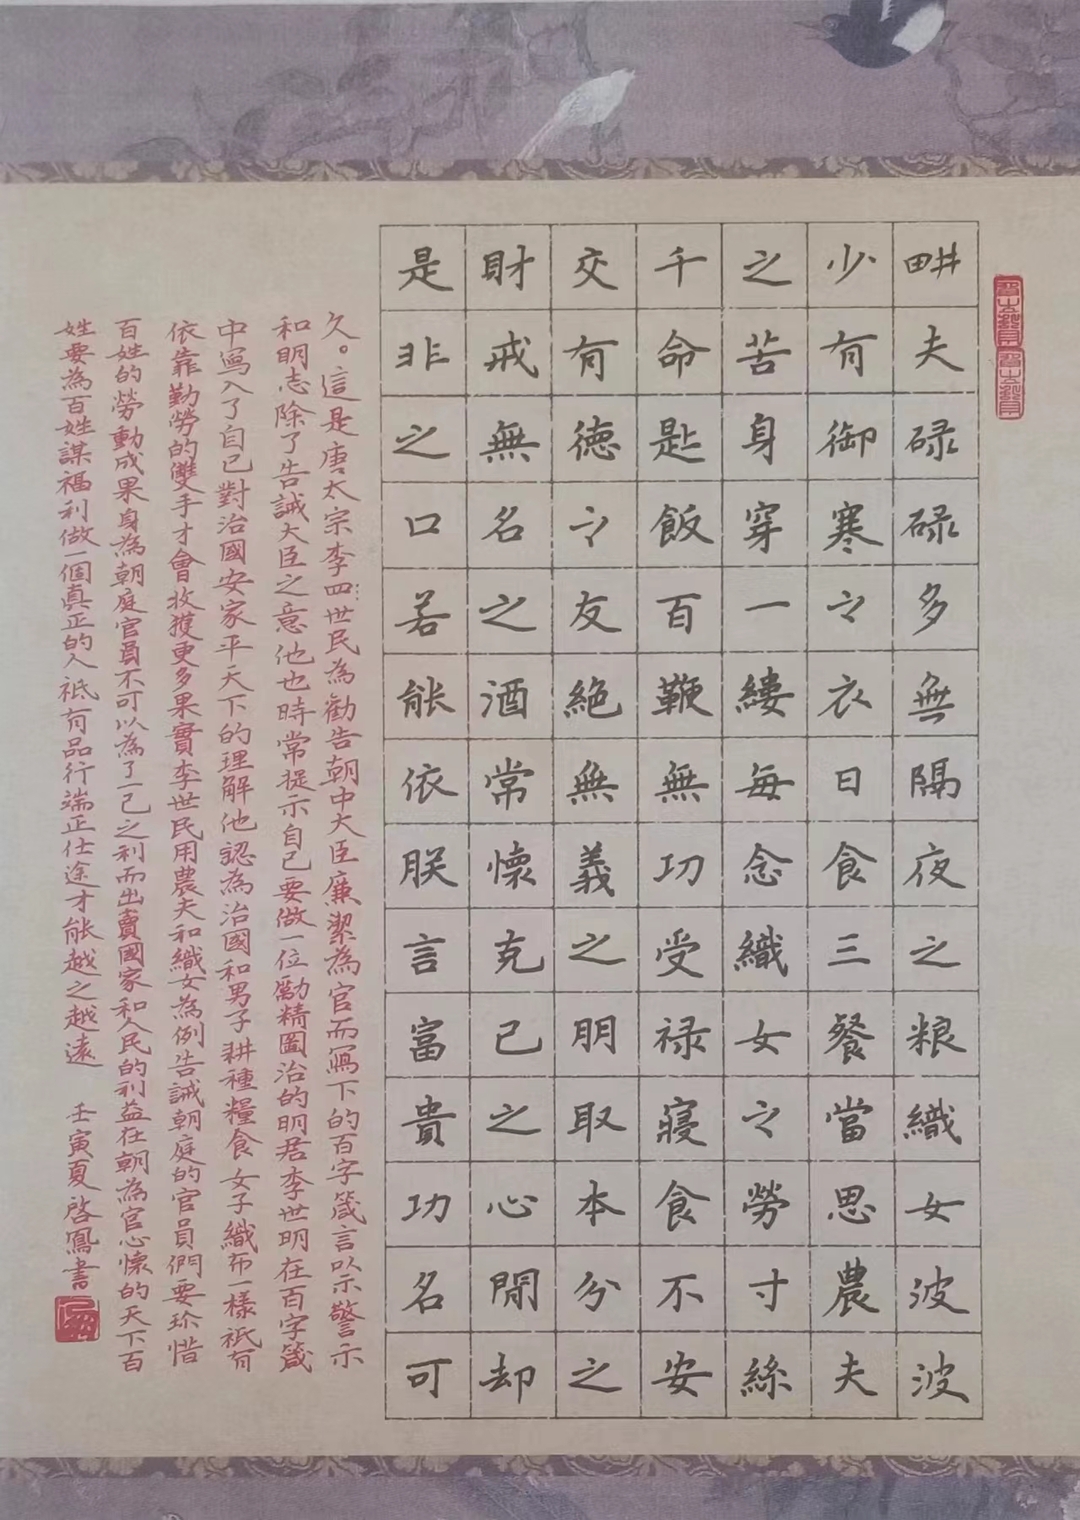 畊夫碌碌多無隔夜之粮織女波波
少有御寒之衣日食三餐當思農夫
之苦身穿一縷每念織女之勞寸絲
千命匙飯百鞭無功受禄寢食不安
交有德之友絕無義之朋取本分之
財戒無名之酒常懷克己之心閉却
是非之口若能依朕言富貴功名可
久。這是唐太宗李四世民為勸告朝中大臣廉潔為官而寫下的百字箴言以示警示
和明志除了告誡大臣之意他也時常提示自己要做一位勵精圖治的明君李世明在百字箴
中寫入了自己對治國安家平天下的理解他認為治國和男子耕種糧食女子織布一樣祇有
依靠勤勞的雙手才會收獲更多果實李世民用農夫和織女為例告誡朝庭的官員們要珍惜
百姓的勞動成果身為朝庭官員不可以為了一己之利而出賣國家和人民的利益在朝為官心懷的天下百
姓要為百姓謀福利做一個真正的人祇有品行端正仕途才能越之越遠
壬寅夏啓鳳書